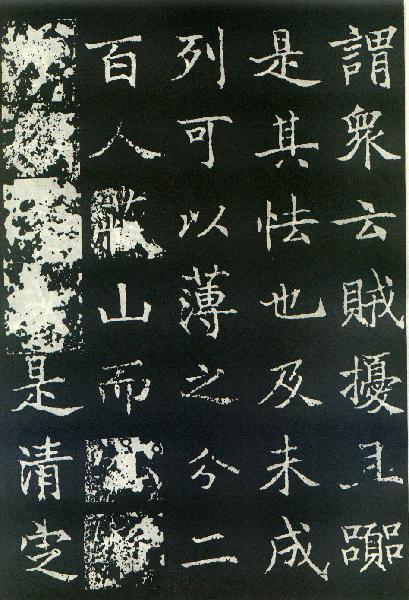 謂衆云賊擾且囂
是其怯也及未成
列可以薄之分二
百人山而
是清定